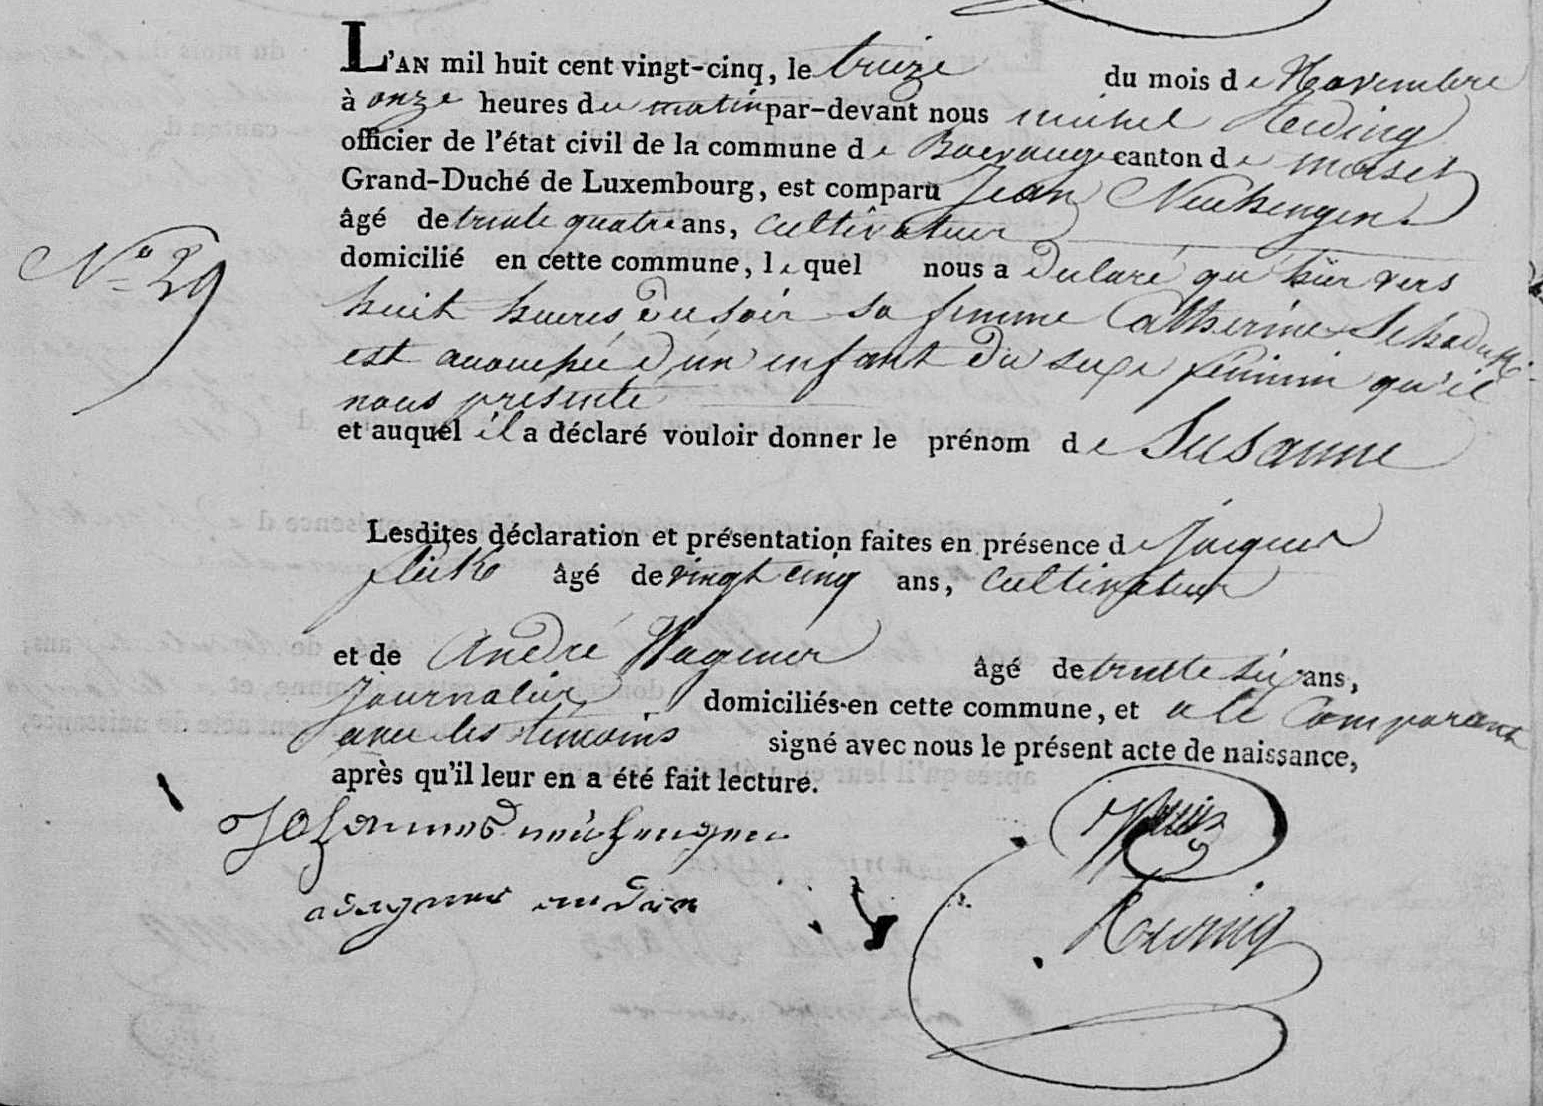 L'AN mil huit cent vingt-cinq, le treize du mois de Novembre
à onze heures du matin par-devant nous michel
officier de l'état civil de la commune de Boevange canton de
Grand-Duché de Luxembourg, est comparu Jean Neuhengen
âgé de trente quatre ans, cultivateur
domicilié en cette commune, lequel nous a declaré qu'hier vers
N.o 39
huit heures du soir sa femme Catherine
est accouchée d'un enfant du sexe féminin qu'il
nous presente
et auquel il a déclaré vouloir donner le prénom de Susanne
Lesdites déclaration et présentation faites en présence de Jacques
âgé de vingt cinq ans, cultivateur
et de André Wagener âgé de trente six ans,
Journalier domiciliés en cette commune, et a le Comparant
avec les temoins signé avec nous le présent acte de naissance,
après qu'il leur en a été fait lecture.
Johannes neuhengen
wagener